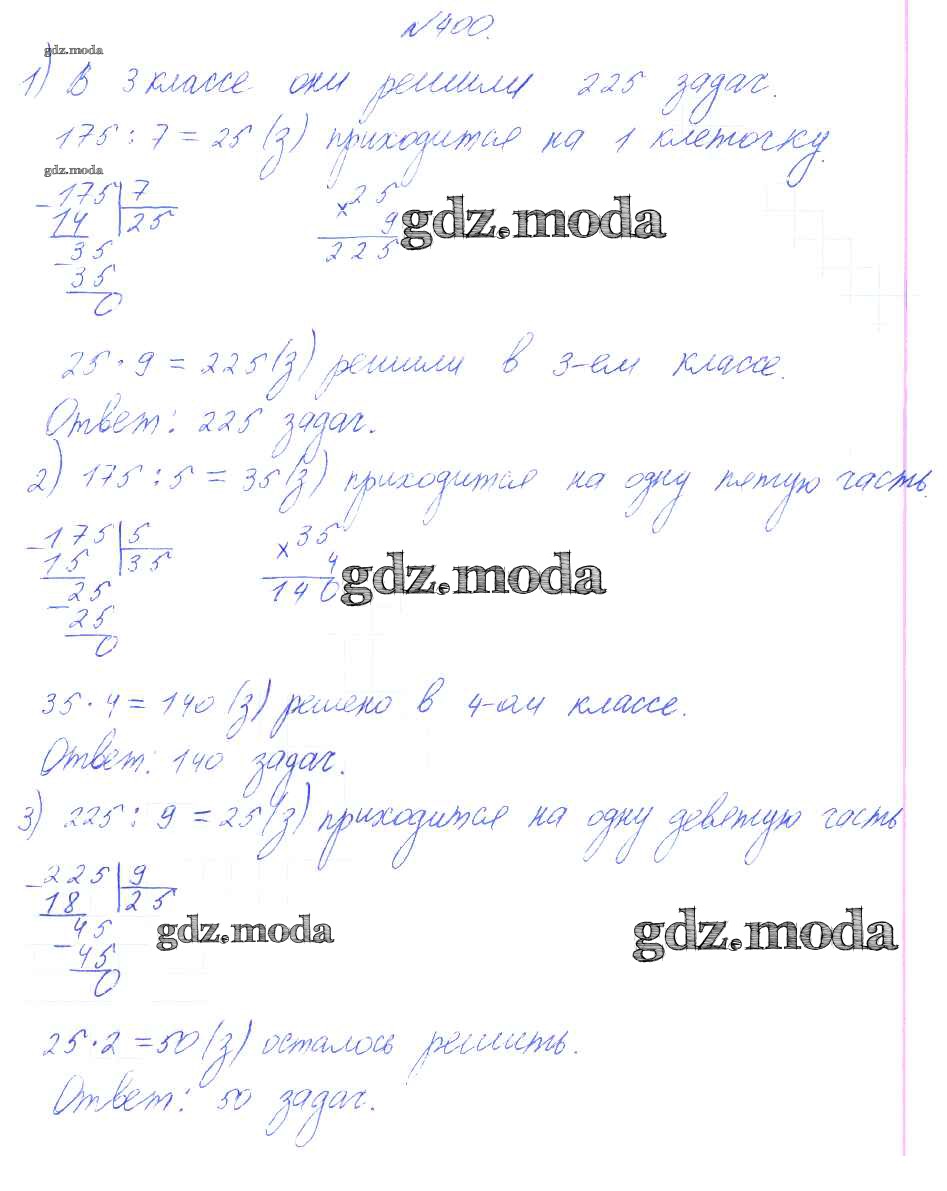 №400.
gdz.moda
1) В 3 классе они решили 225 задач.
175 : 7 = 25 (з) приходится на 1 клеточку.
gdz.moda
- 175 | 7
14 | 25
- 35
35
0
× 25
9
225
gdz.moda
25 · 9 = 225 (з) решили в 3-ем классе.
Ответ: 225 задач.
2) 175 : 5 = 35 (з) приходится на одну пятую часть.
- 175 | 5
15 | 35
- 25
25
0
× 35
4
140
gdz.moda
35 · 4 = 140 (з) решено в 4-ом классе.
Ответ: 140 задач.
3) 225 : 9 = 25 (з) приходится на одну девятую часть
- 225 | 9
18 | 25
- 45
45
0
gdz.moda
gdz.moda
25 · 2 = 50 (з) осталось решить.
Ответ: 50 задач.